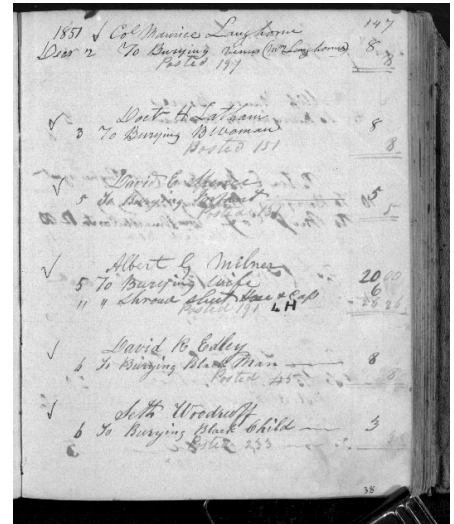 147
1851 √ Col Maurice Langhorne
Decr 2 To Burying Venus (Mr Langhorne) 8
Posted 197 8
√ Doct H Latham
3 To Burying B Woman 8
Posted 151 8
√ David C
5 To Burying 5
Posted 5
√ Albert G Milner
5 To Burying Wife 20,00
" " Shroud sheet Hose & Cap 6
Posted 191 LH 26
√ David R Edley
6 To Burying Black Man 8
Posted 45 8
√ Seth Woodruff
6 To Burying Black Child 3
Posted 233
38